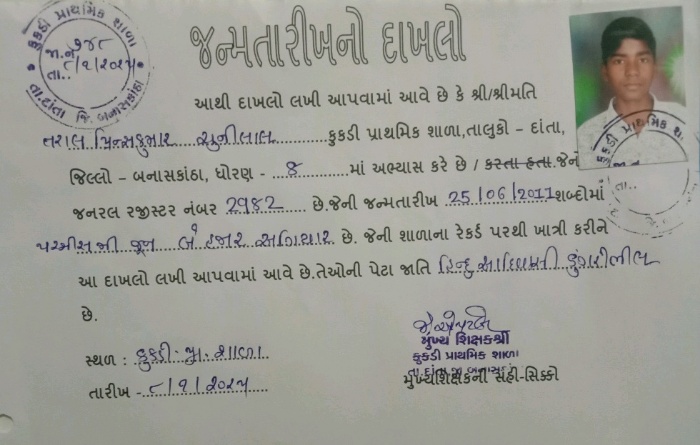 કુકડી પ્રાથમિક શાળા
જા.નં ૭૪૮
તા.. ૮/૧/૨૦૨૫
તા.દાંતા જિ.બનાસકાંઠા
જન્મતારીખનો દાખલો
આથી દાખલો લખી આપવામાં આવે છે કે શ્રી/શ્રીમતિ
તરાલ પ્રિન્સકુમાર સુનીલાલ કુકડી પ્રાથમિક શાળા,તાલુકો - દાંતા,
જિલ્લો - બનાસકાંઠા, ધોરણ - ૮ માં અભ્યાસ કરે છે / કરતા હતા.જેનો
જનરલ રજીસ્ટર નંબર 2982 છે.જેની જન્મતારીખ 25/06/2011 શબ્દોમાં
પચ્ચીસમી જૂન બે હજાર અગિયાર છે. જેની શાળાના રેકર્ડ પરથી ખાત્રી કરીને
આ દાખલો લખી આપવામાં આવે છે.તેઓની પેટા જાતિ હિન્દુ આદિવાસી ડુંગરીભીલ
છે.
સ્થળ : કુકડી પ્રા. શાળા
તારીખ - ૮/૧/૨૦૨૫
મુખ્ય શિક્ષકશ્રી
કુકડી પ્રાથમિક શાળા
તા.દાંતા,જી.બનાસકાંઠા
મુખ્યશિક્ષકની સહી-સિક્કો
પ્રાથમિક શા
તા..